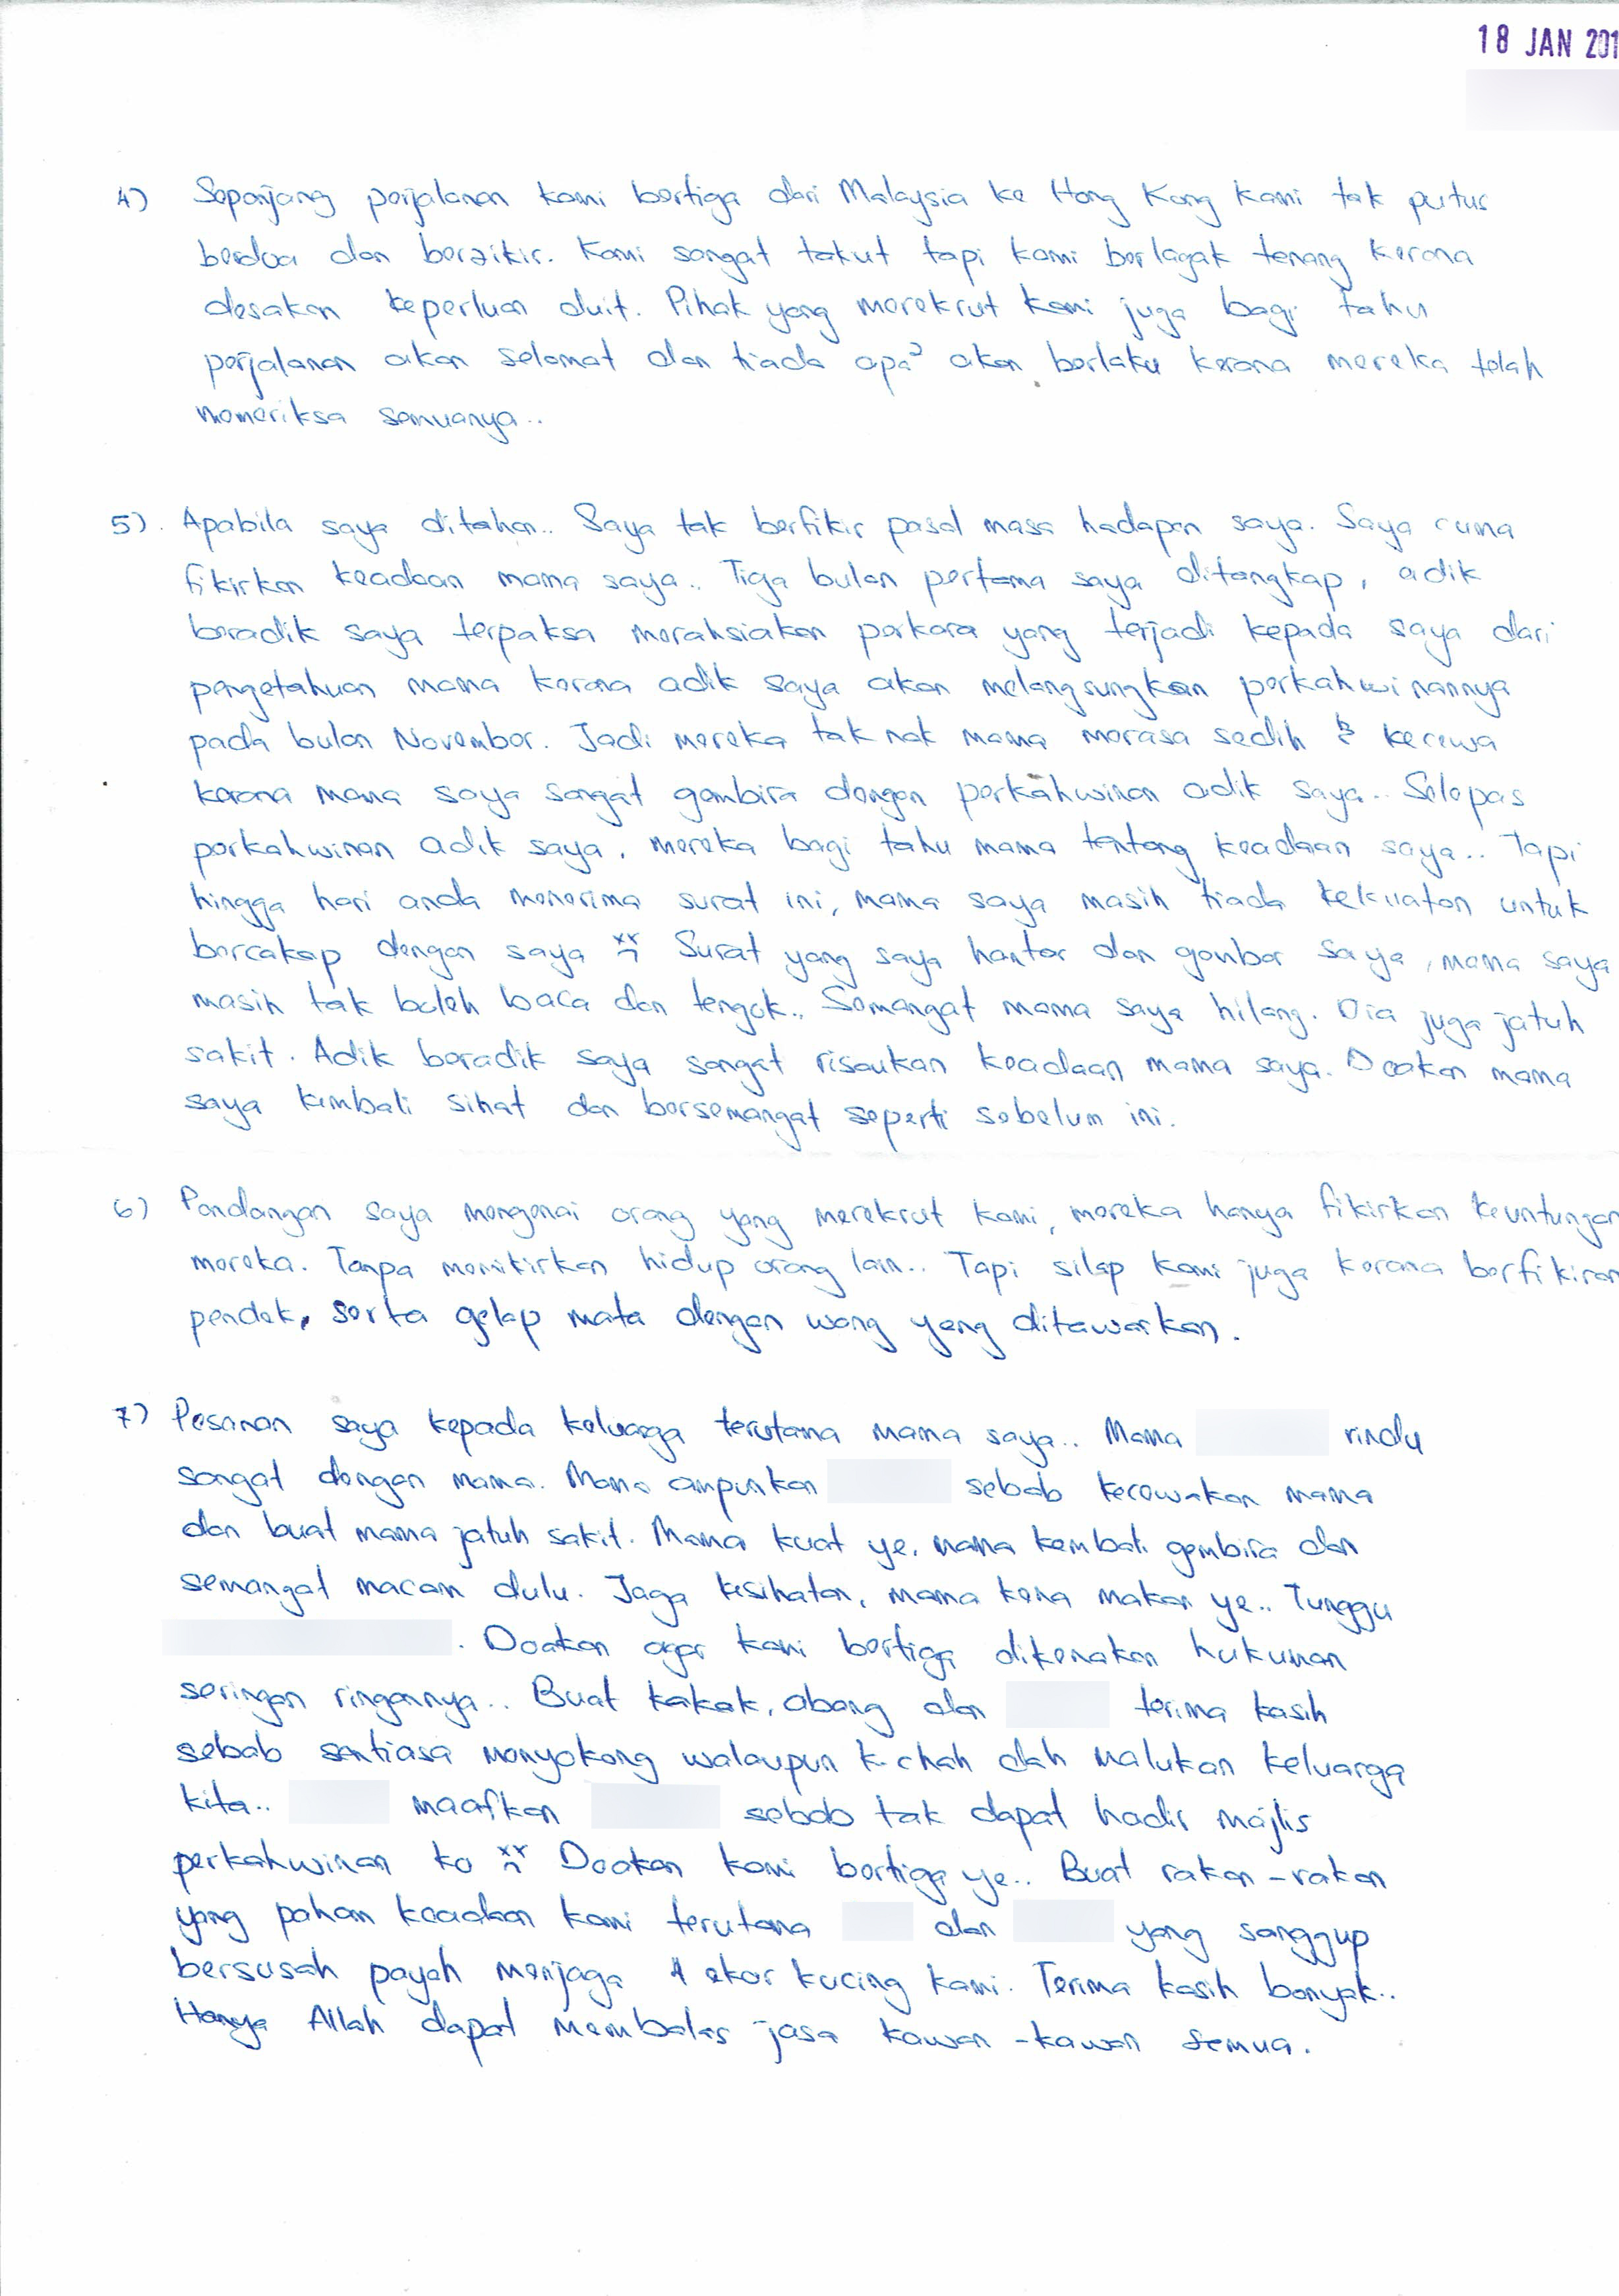 18 JAN 201
4) Sepanjang perjalanan kami bertiga dari Malaysia ke Hong Kong kami tak putus
berdoa dan berzikir. Kami sangat takut tapi kami berlagak tenang kerana
desakan keperluan duit. Pihak yang merekrut kami juga bagi tahu
perjalanan akan selamat dan tiada apa² akan berlaku kerana mereka telah
memeriksa semuanya..
5). Apabila saya ditahan.. Saya tak berfikir pasal masa hadapan saya. Saya cuma
fikirkan keadaan mama saya.. Tiga bulan pertama saya ditangkap, adik
beradik saya terpaksa merahsiakan perkara yang terjadi kepada saya dari
pengetahuan mama kerana adik saya akan melangsungkan perkahwinannya
pada bulan November. Jadi mereka tak nak mama merasa sedih & kecewa
kerana mama saya sangat gembira dengan perkahwinan adik saya.. Selepas
perkahwinan adik saya, mereka bagi tahu mama tentang keadaan saya.. Tapi
hingga hari anda menerima surat ini, mama saya masih tiada kekuatan untuk
bercakap dengan saya Surat yang saya hantar dan gambar saya, mama saya
masih tak boleh baca dan tengok.. Semangat mama saya hilang. Dia juga jatuh
sakit. Adik beradik saya sangat risaukan keadaan mama saya. Doakan mama
saya kembali sihat dan bersemangat seperti sebelum ini.
6) Pandangan saya mengenai orang yang merekrut kami, mereka hanya fikirkan keuntungan
mereka. Tanpa memikirkan hidup orang lain.. Tapi silap kami juga kerana berfikiran
pendek, serta gelap mata dengan wang yang ditawarkan.
7) Pesanan saya kepada keluarga terutama mama saya.. Mama rindu
sangat dengan mama. Mama ampunkan sebab kecewakan mama
dan buat mama jatuh sakit. Mama kuat ye, mama kembali gembira dan
semangat macam dulu. Jaga kesihatan, mama kena makan ye.. Tunggu
. Doakan agar kami bertiga dikenakan hukuman
seringan ringannya.. Buat kakak, abang dan terima kasih
sebab sentiasa menyokong walaupun k.chah dah malukan keluarga
kita.. maafkan sebab tak dapat hadir majlis
perkahwinan ko Doakan kami bertiga ye.. Buat rakan-rakan
yang paham keadaan kami terutama dan yang sanggup
bersusah payah menjaga 4 ekor kucing kami. Terima kasih banyak..
Hanya Allah dapat membalas jasa kawan-kawan semua.